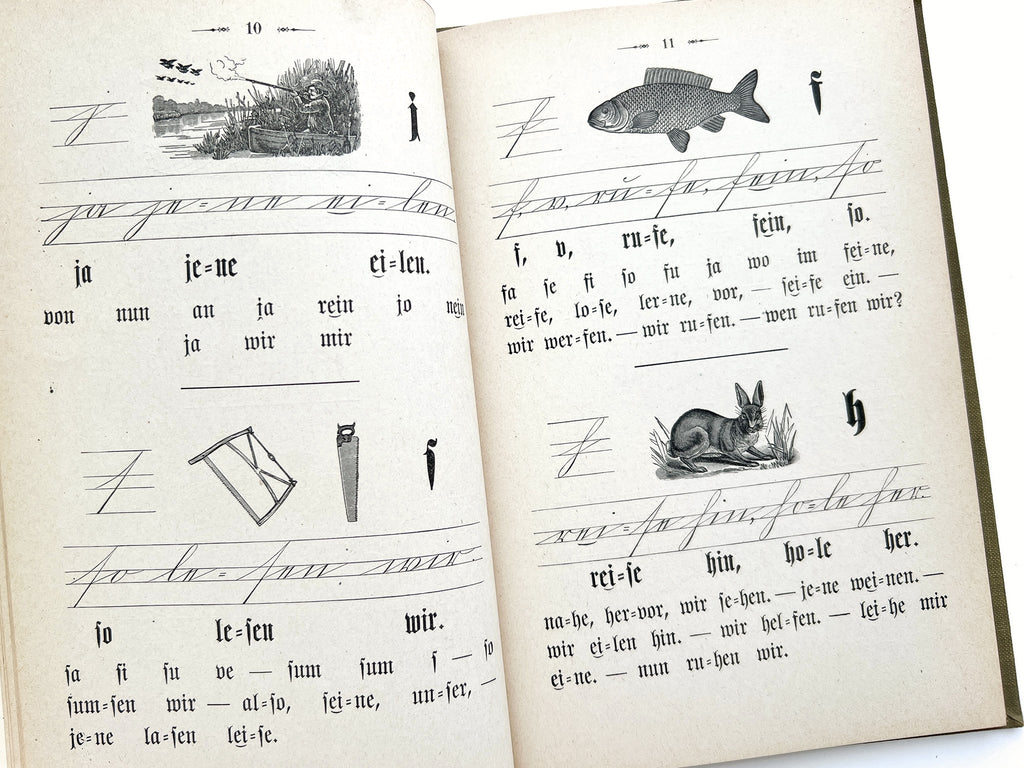 10
j j
ja je=ne ei=len
ja je=ne ei=len.
von nun an ja rein jo nein
ja wir mir
ſ ſ
ſo le=ſen wir.
ſo le=ſen wir.
ſa ſi ſu ve — ſum ſum ſ — ſo
ſum=ſen wir — al=ſo, ſei=ne, un=ſer, —
je=ne la=ſen lei=ſe.
11
f f
f, v, ru=fe, fein, ſo
f, v, ru=fe, fein, ſo.
fa fe fi fo fu ja wo im fei=ne,
rei=fe, lo=ſe, ler=ne, vor, — ſei=fe ein. —
wir wer=fen. — wir ru=fen. — wen ru=fen wir?
h h
rei=ſe hin, ho=le her.
rei=ſe hin, ho=le her.
na=he, her=vor, wir ſe=hen. — je=ne wei=nen. —
wir ei=len hin. — wir hel=fen. — lei=he mir
ei=ne. — nun ru=hen wir.